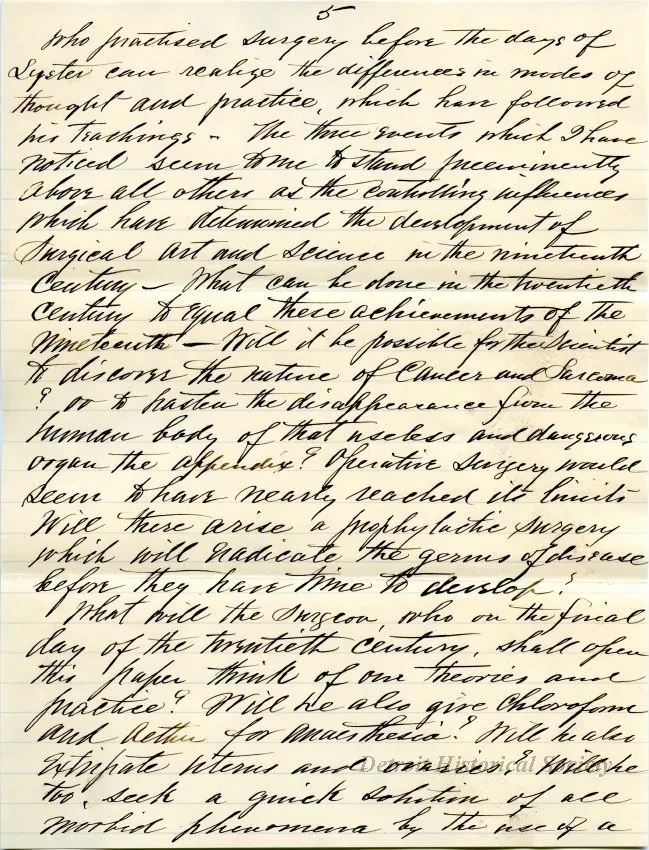 5
who practised surgery before the days of
Lyster can realize the differences in modes of
thought and practice, which have followed
his teachings - The three events which I have
noticed seem to me to stand preeminently
above all others as the controlling influences
which have determined the development of
Surgical Art and Science in the nineteenth
Century - What can be done in the twentieth
century to equal these achievements of the
Nineteenth - Will it be possible for the Scientist
to discover the nature of Cancer and Sarcoma
? or to hasten the disappearance from the
human body of that useless and dangerous
organ the appendix? Operative surgery would
seem to have nearly reached its limits
Will there arise a prophylactic surgery
which will eradicate the germs of disease
before they have time to develop?
What will the Surgeon, who on the final
day of the twentieth century, shall open
this paper think of our theories and
practice? Will he also give Chloroform
and Aether for anaesthesia? Will he also
extirpate uterus and ovaries? Will he
too, seek a quick solution of all
morbid phenomena by the use of a
Detroit Historical Society